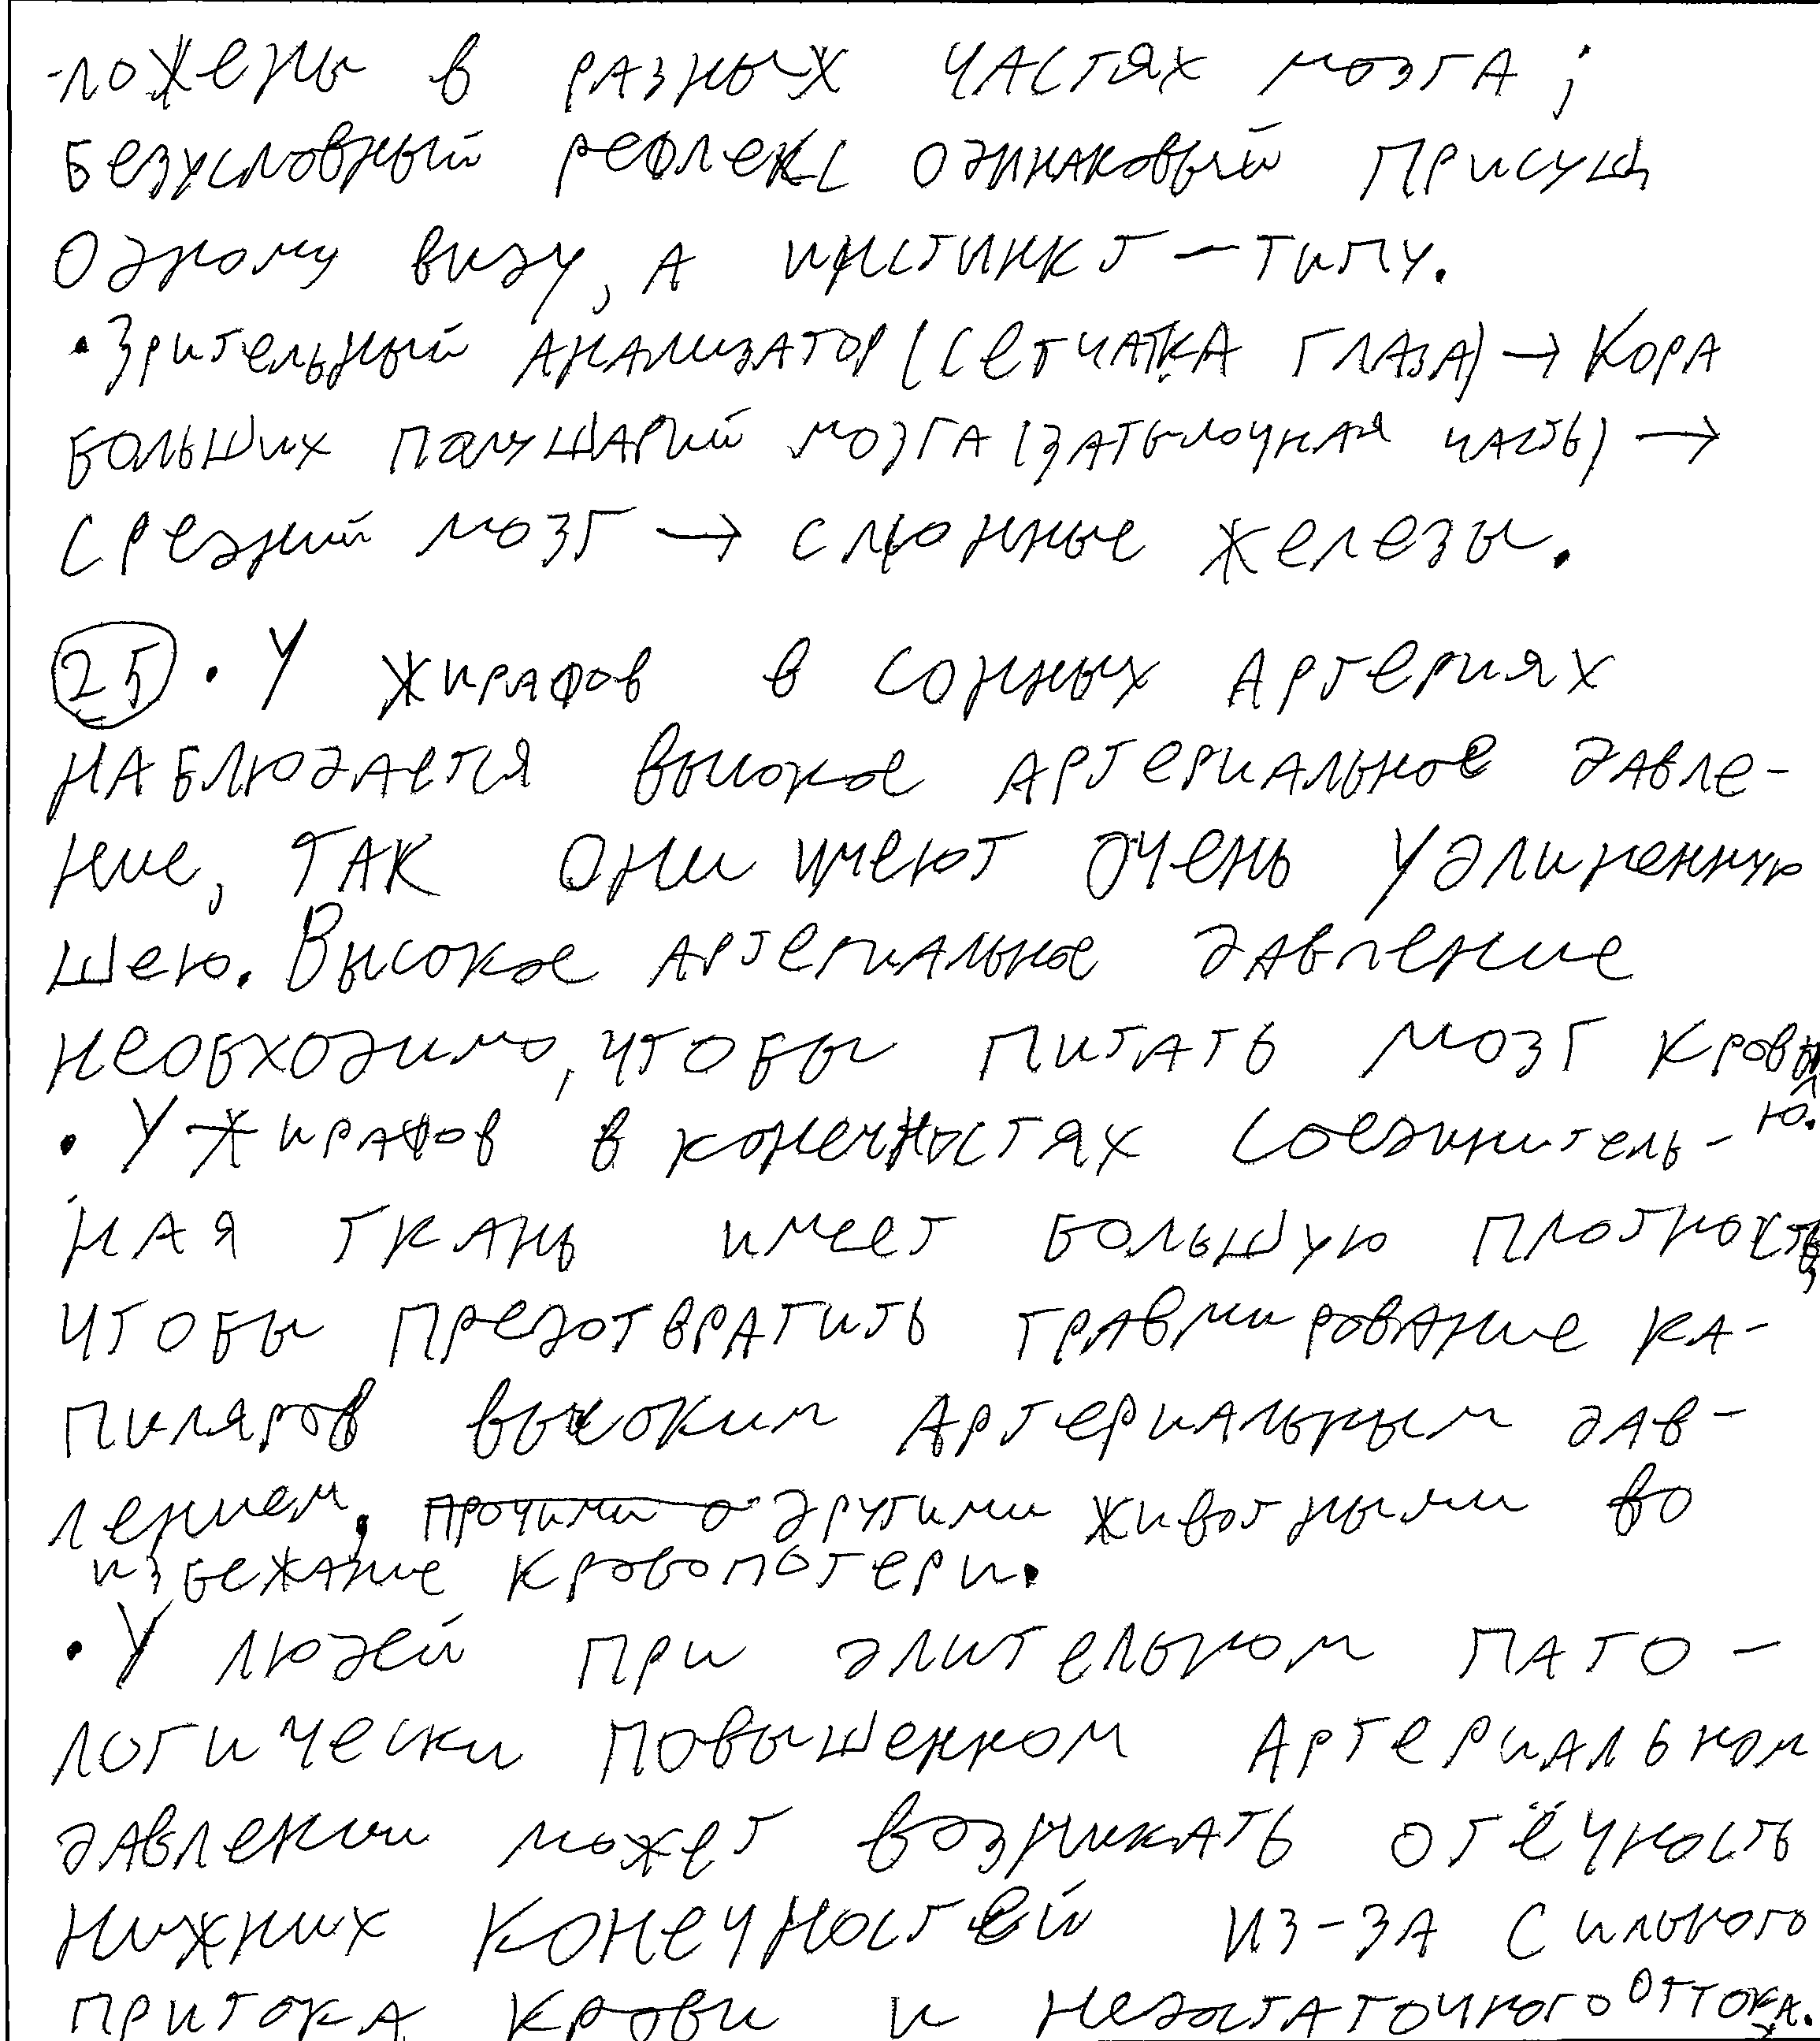 -ложены в разных частях мозга;
безусловный рефлекс одинаковый присущ
одному виду, а инстинкт – типу.
• Зрительный анализатор (сетчатка глаза) → Кора
больших полушарий мозга (затылочная часть) →
средний мозг → слюнные железы.
25 • У жирафов в сонных артериях
наблюдается высокое артериальное давле-
ние, так они имеют очень удлиненную
шею. Высокое артериальное давление
необходимо, чтобы питать мозг кровь
ю.
• У жирафов в конечностях соединитель-
ная ткань имеет большую плотность,
чтобы предотвратить травмирование ка-
пиляров высоким артериальным дав-
лением, прочими о другими животными во
избежание кровопотери.
• У людей при длительном пато-
логически повышенном артериальном
давлении может возникать отёчность
нижних конечностей из-за сильного
притока крови и недостаточного оттока.